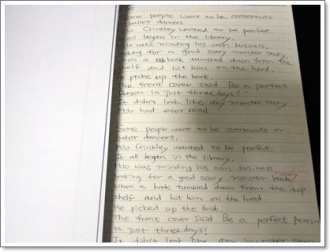 Some people want to be astronauts or
ballet dancers.
Milo Crinkley wanted to be perfect.
It all began in the library.
Milo was minding his own business,
looking for a good scary monster story
when a book tumbled down from the
shelf and hit him on the head.
He picked up the book.
The front cover said Be a perfect
person in just three days!
It didn't look like any monster story
Milo had ever read.
Some people want to be astronauts or
ballet dancers.
Milo Crinkley wanted to be perfect.
It all began in the library.
Milo was minding his own business
looking for a good scary monster book
when a book tumbled down from the top
shelf and hit him on the head.
He picked up the book.
The front cover said Be a perfect person
in just three days!
It didn't look like any monster story